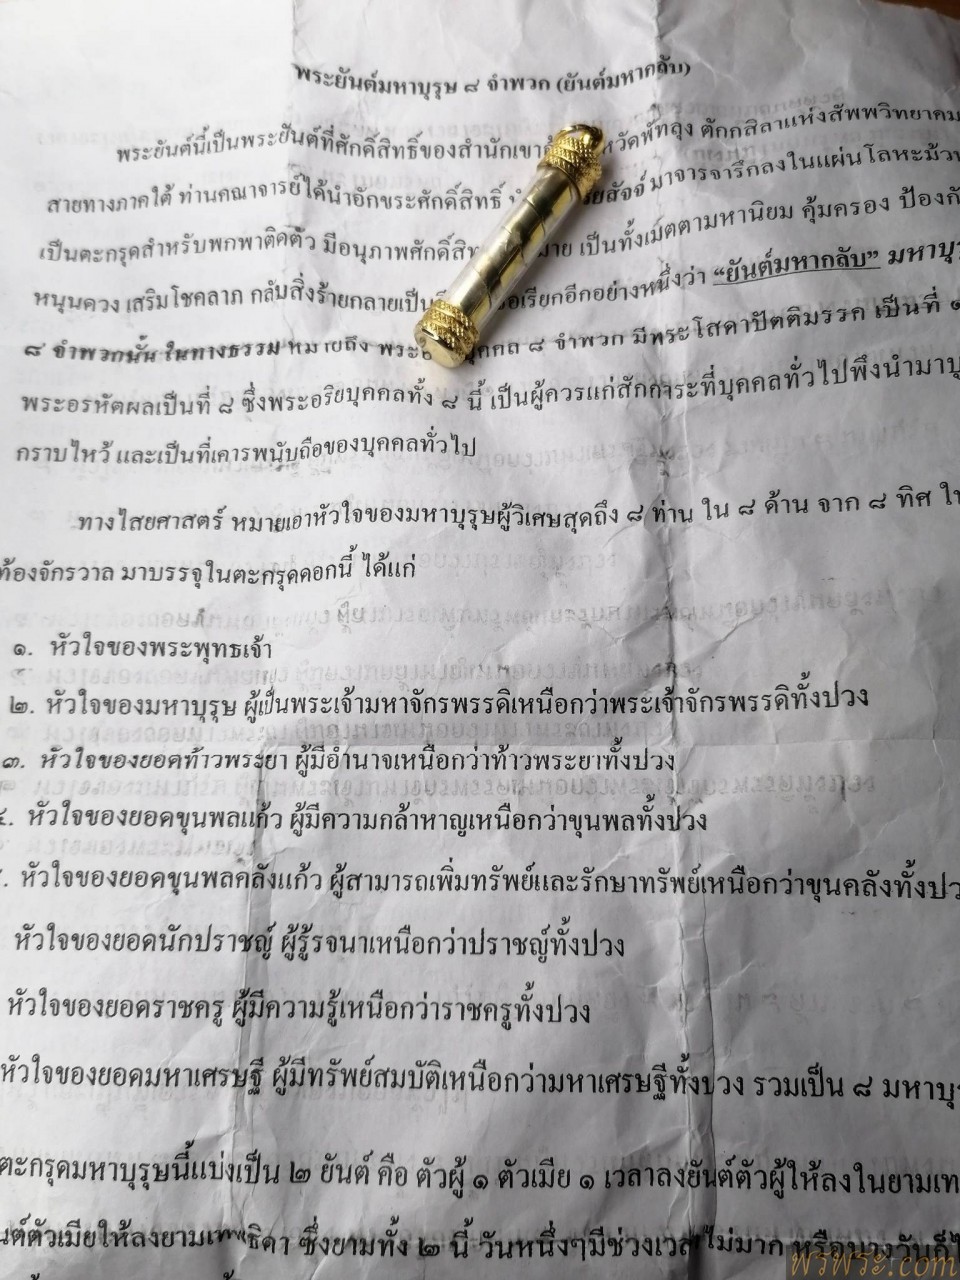 พระยันต์มหาบุรุษ ๘ จำพวก (ยันต์มหากลับ)
พระยันต์นี้เป็นพระยันต์ที่ศักดิ์สิทธิ์ของสำนักเขา หวัดพัทลุง ตักกสิลาแห่งสัพพวิทยาคม
สายทางภาคใต้ ท่านคณาจารย์ได้นำอักขระศักดิ์สิทธิ์ มาจารจารึกลงในแผ่นโลหะม้วน
เป็นตะกรุดสำหรับพกพาติดตัว มีอนุภาพศักดิ์สิท มาย เป็นทั้งเมตตามหานิยม คุ้มครอง ป้องกั
หนุนดวง เสริมโชคลาภ กลับสิ่งร้ายกลายเป็น รอเรียกอีกอย่างหนึ่งว่า “ยันต์มหากลับ” มหาบุ
๘ จำพวกนั้น ในทางธรรม หมายถึง พระ บุคคล ๘ จำพวก มีพระโสดาปัตติมรรค เป็นที่ ๑
พระอรหัตผลเป็นที่ ๘ ซึ่งพระอริยบุคคลทั้ง ๘ นี้ เป็นผู้ควรแก่สักการะที่บุคคลทั่วไปพึงนำมาบู
กราบไหว้ และเป็นที่เคารพนับถือของบุคคลทั่วไป
ทางไสยศาสตร์ หมายเอาหัวใจของมหาบุรุษผู้วิเศษสุดถึง ๘ ท่าน ใน ๘ ด้าน จาก ๘ ทิศ ใ
ท้องจักรวาล มาบรรจุในตะกรุดดอกนี้ ได้แก่
๑. หัวใจของพระพุทธเจ้า
๒. หัวใจของมหาบุรุษ ผู้เป็นพระเจ้ามหาจักรพรรดิเหนือกว่าพระเจ้าจักรพรรดิทั้งปวง
๓. หัวใจของยอดท้าวพระยา ผู้มีอำนาจเหนือกว่าท้าวพระยาทั้งปวง
๔. หัวใจของยอดขุนพลแก้ว ผู้มีความกล้าหาญเหนือกว่าขุนพลทั้งปวง
. หัวใจของยอดขุนพลคลังแก้ว ผู้สามารถเพิ่มทรัพย์และรักษาทรัพย์เหนือกว่าขุนคลังทั้งปว
หัวใจของยอดนักปราชญ์ ผู้รู้รจนาเหนือกว่าปราชญ์ทั้งปวง
หัวใจของยอดราชครู ผู้มีความรู้เหนือกว่าราชครูทั้งปวง
หัวใจของยอดมหาเศรษฐี ผู้มีทรัพย์สมบัติเหนือกว่ามหาเศรษฐีทั้งปวง รวมเป็น ๘ มหาบุ
ตะกรุดมหาบุรุษนี้แบ่งเป็น ๒ ยันต์ คือ ตัวผู้ ๑ ตัวเมีย ๑ เวลาลงยันต์ตัวผู้ให้ลงในยามเท
นต์ตัวเมียให้ลงยามเทพธิดา ซึ่งยามทั้ง ๒ นี้ วันหนึ่งๆมีช่วงเวลาไม่มาก หรือบางวันก็ไ
พรพระ.com